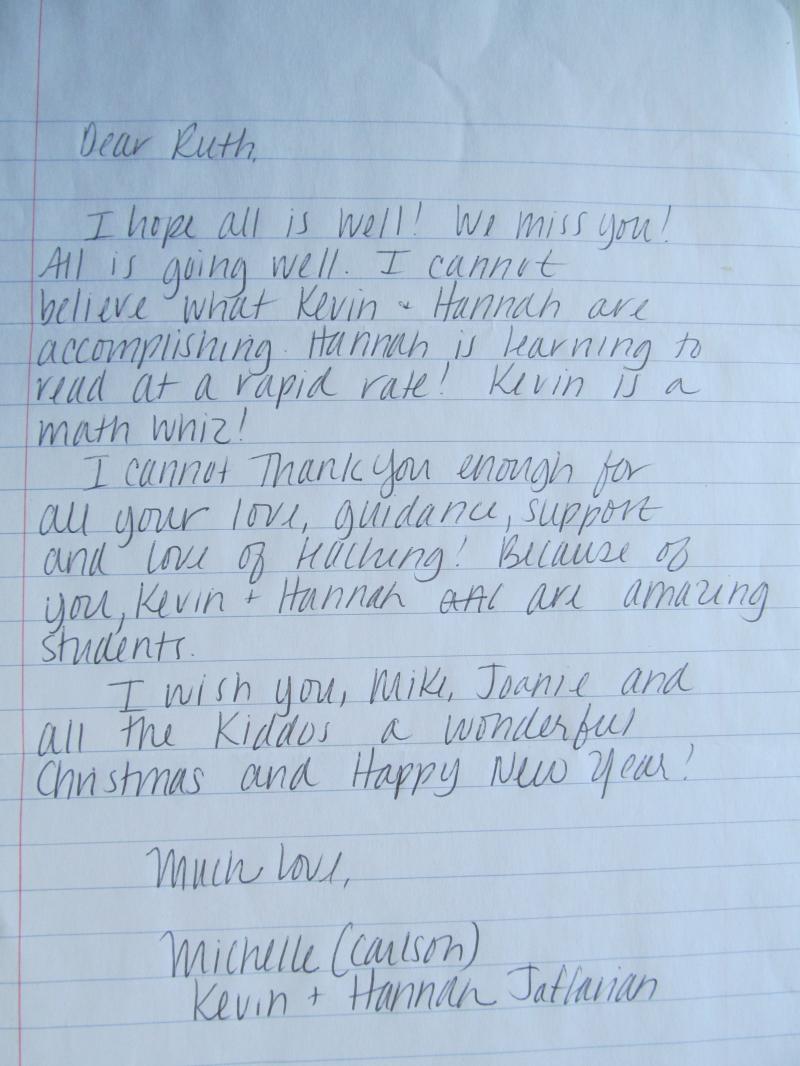 Dear Ruth,
I hope all is well! We miss you!
All is going well. I cannot
believe what Kevin & Hannah are
accomplishing. Hannah is learning to
read at a rapid rate! Kevin is a
math whiz!
I cannot Thank you enough for
all your love, guidance, support
and love of teaching! Because of
you, Kevin + Hannah are amazing
students.
I wish you, Mike, Joanie and
all the Kiddos a wonderful
Christmas and Happy New Year!
Much Love,
Michelle (Carlson)
Kevin + Hannah